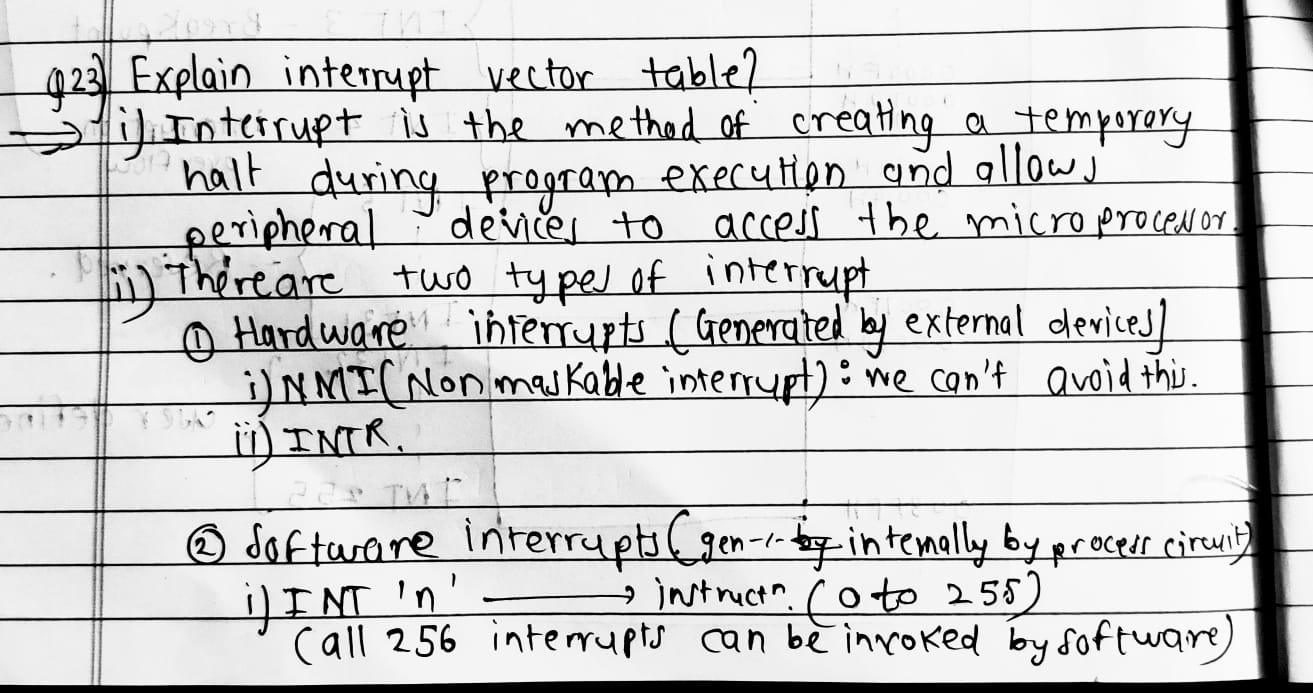 Q23) Explain interrupt vector table?
→ i) Interrupt is the method of creating a temporary
halt during program execution and allows
peripheral devices to access the microprocessor.
ii) There are two types of interrupt
① Hardware interrupts (Generated by external devices)
i) NMI (Non maskable interrupt) : we can't avoid this.
ii) INTR.
② Software interrupts (gen-r- by internally by process circuit)
i) INT 'n' → instructn. (0 to 255)
(all 256 interrupts can be invoked by software)